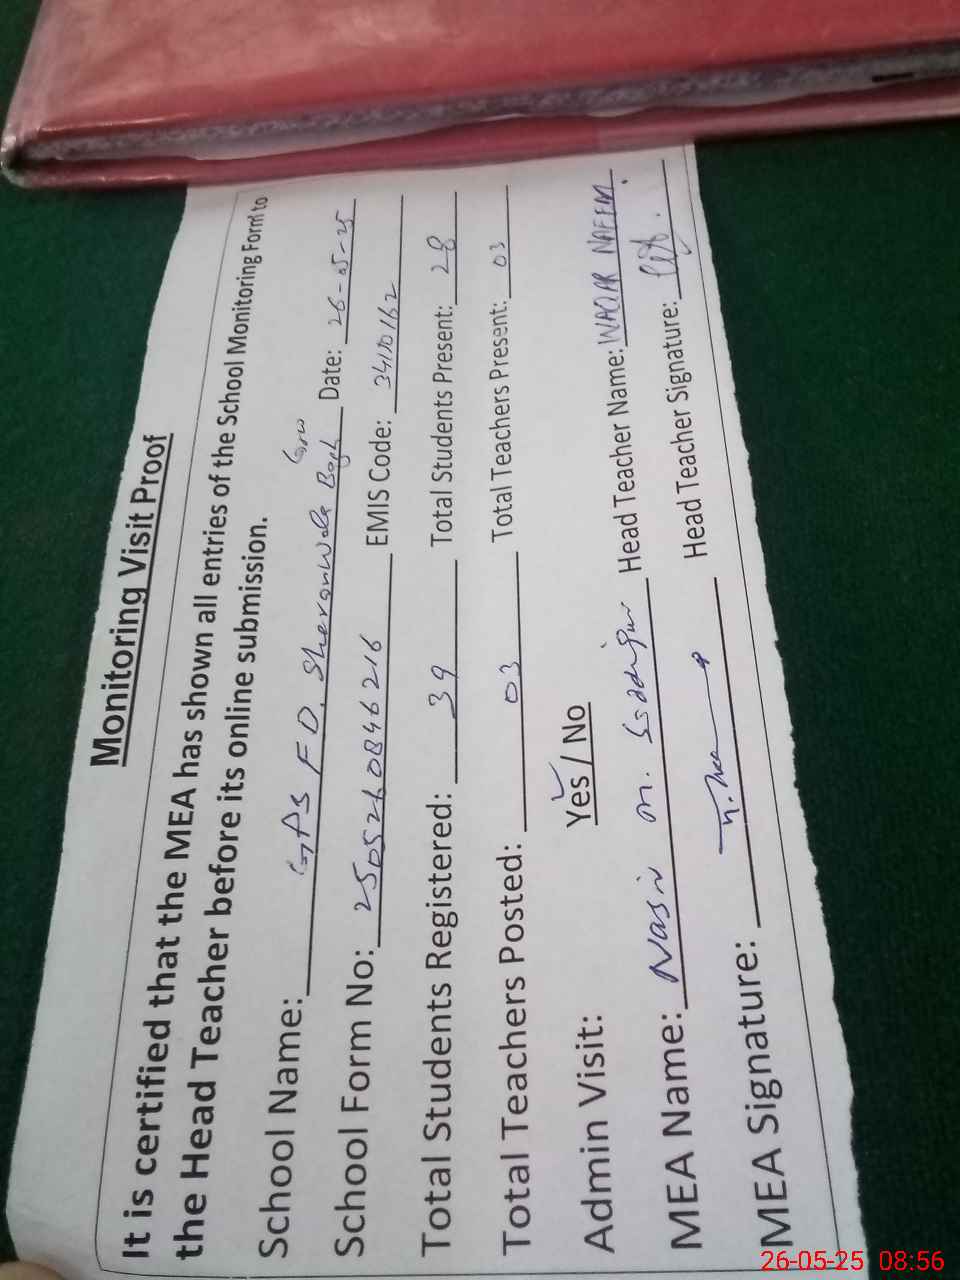 Monitoring Visit Proof
It is certified that the MEA has shown all entries of the School Monitoring Form to
the Head Teacher before its online submission.
School Name: GPS F D. Sheranwala Bagh Grw Date: 26-05-25
School Form No: 2505260846216 EMIS Code: 34110162
Total Students Registered: 39 Total Students Present: 28
Total Teachers Posted: 03 Total Teachers Present: 03
Admin Visit: Yes / No
MEA Name: Nasir m. Head Teacher Name: WAQAR NAEEM.
MEA Signature: Head Teacher Signature:
26-05-25 08:56